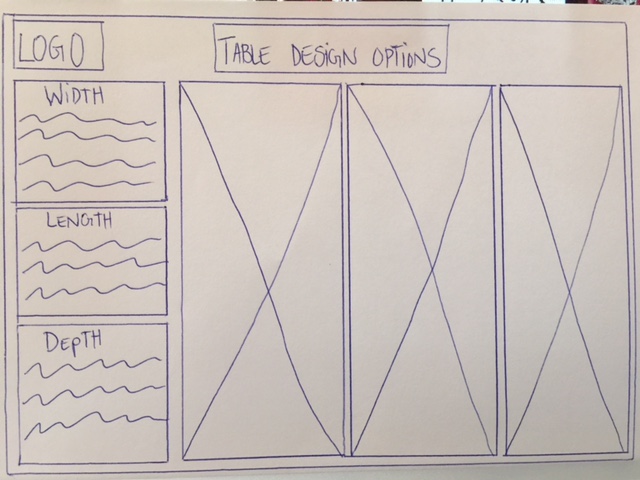 LOGO
TABLE DESIGN OPTIONS
WIDTH
LENGTH
DEPTH